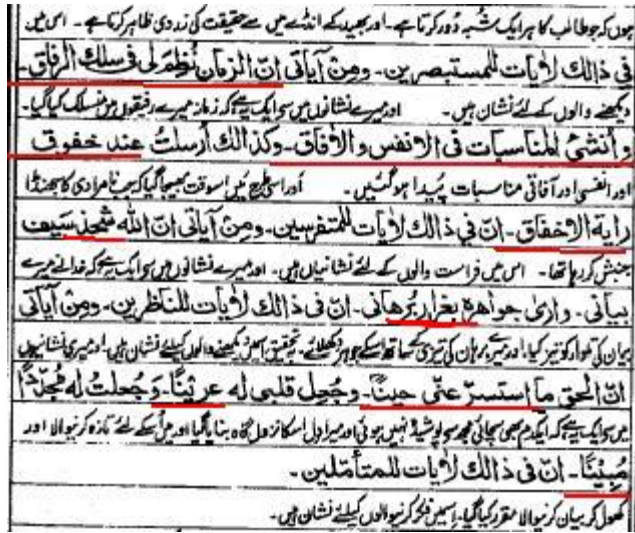 ہوں کہ جو طالب کا ہر ایک شُبہ دُور کرتا ہے۔ اور بھید کے انڈے میں سے حقیقت کی زردی ظاہر کرتا ہے۔ اس میں
فی ذالك لاٰیات للمستبصرین۔ ومِنْ آیاتی انّ الزمان نُظِمَ لی فی سلك الرفاق۔
دیکھنے والوں کے لئے نشان ہیں۔ اور میرے نشانوں میں سے ایک یہ ہے کہ زمانہ میرے رفیقوں میں منسلک کیا گیا۔
وأُنشئ المناسبات فی الانفس والاٰفاق۔ وکذالك أُرسلتُ عند خفوق
اور انفسی اور آفاقی مناسبات پیدا ہو گئیں۔ اور اسی طرح میں اسوقت بھیجا گیا کہ جب نامرادی کا جھنڈا
رایة الاخفاق۔ انّ فی ذالك لاٰیات للمتفرسین۔ ومِنْ آیاتی انّ الله شحذ سَیف
جنبش کر رہا تھا۔ اس میں فراست والوں کے لئے نشانیاں ہیں۔ اور میرے نشانوں میں سے ایک یہ ہے کہ خدا نے میرے
بیانی۔ واَرٰی جواهرہ بغرار بُرهانی۔ انّ فی ذالك لاٰیات للناظرین۔ ومِنْ آیاتی
بیان کی تلوار کو تیز کیا اور میرے برہان کی تیزی کے ساتھ اسکے جوہر دکھلائے۔ بہ تحقیق اسمیں دیکھنے والوں کیلئے نشان ہیں۔ اور میری نشانیوں
انّ الحق ما استسرّ عنّی حینًا۔ وجُعِل قلبی له عرینًا۔ وَجُعلتُ له مُجدّدًا
میں سے ایک یہ ہے کہ ایکدم بھی سچائی مجھ سے پوشیدہ نہیں ہوئی اور میرا دل اسکا منزل گاہ بنایا گیا اور میں اُس کے لئے تازہ کرنیوالا اور
مُبِیْنًا۔ انّ فی ذالك لاٰیات للمتأمّلین۔
کھول کر بیان کرنیوالا مقرر کیا گیا۔ اسمیں فکر کرنیوالوں کیلئے نشان ہیں۔